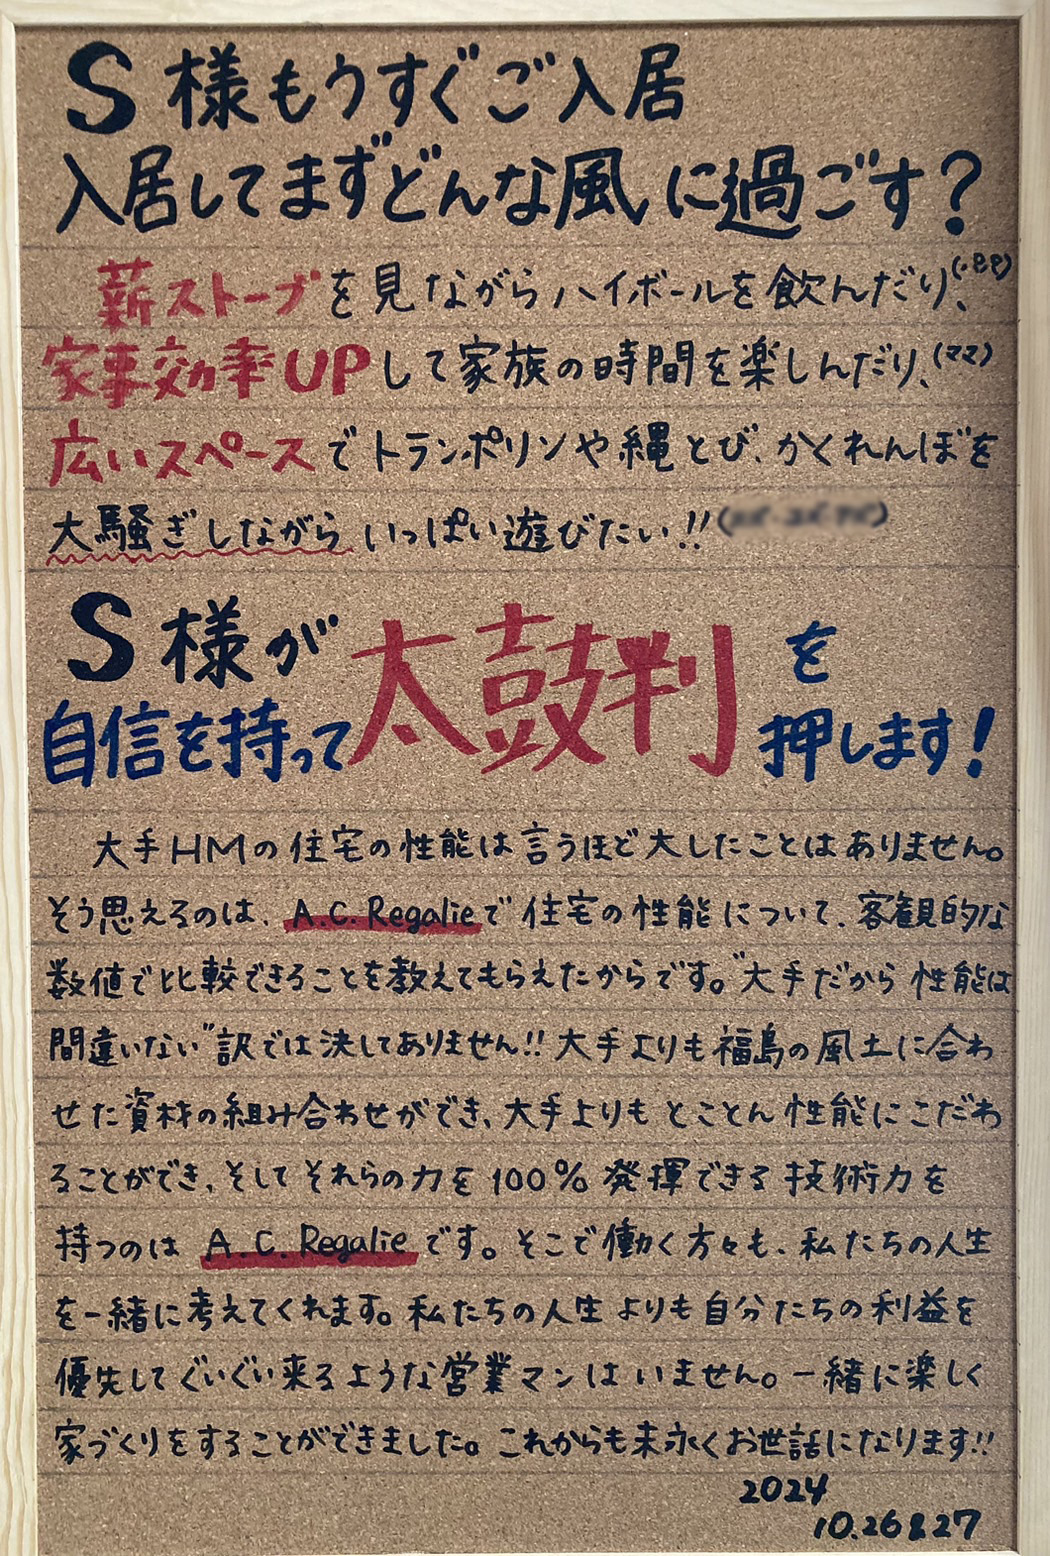 S様もうすぐご入居
入居してまずどんな風に過ごす？
薪ストーブを見ながらハイボールを飲んだり、(パパ)
家事効率UPして家族の時間を楽しんだり、(ママ)
広いスペースでトランポリンや縄とび、かくれんぼを
大騒ぎしながらいっぱい遊びたい!!
S様が太鼓判を
自信を持って押します!
大手HMの住宅の性能は言うほど大したことはありません。
そう思えるのは、A.C.Regalieで住宅の性能について、客観的な
数値で比較できることを教えてもらえたからです。"大手だから性能は
間違いない"訳では決してありません!!大手よりも福島の風土に合わ
せた資材の組み合わせができ、大手よりもとことん性能にこだわ
ることができ、そしてそれらの力を100%発揮できる技術力を
持つのはA.C.Regalieです。そこで働く方々も、私たちの人生
を一緒に考えてくれます。私たちの人生よりも自分たちの利益を
優先してぐいぐい来るような営業マンはいません。一緒に楽しく
家づくりをすることができました。これからも末永くお世話になります!!
2024
10.26&27